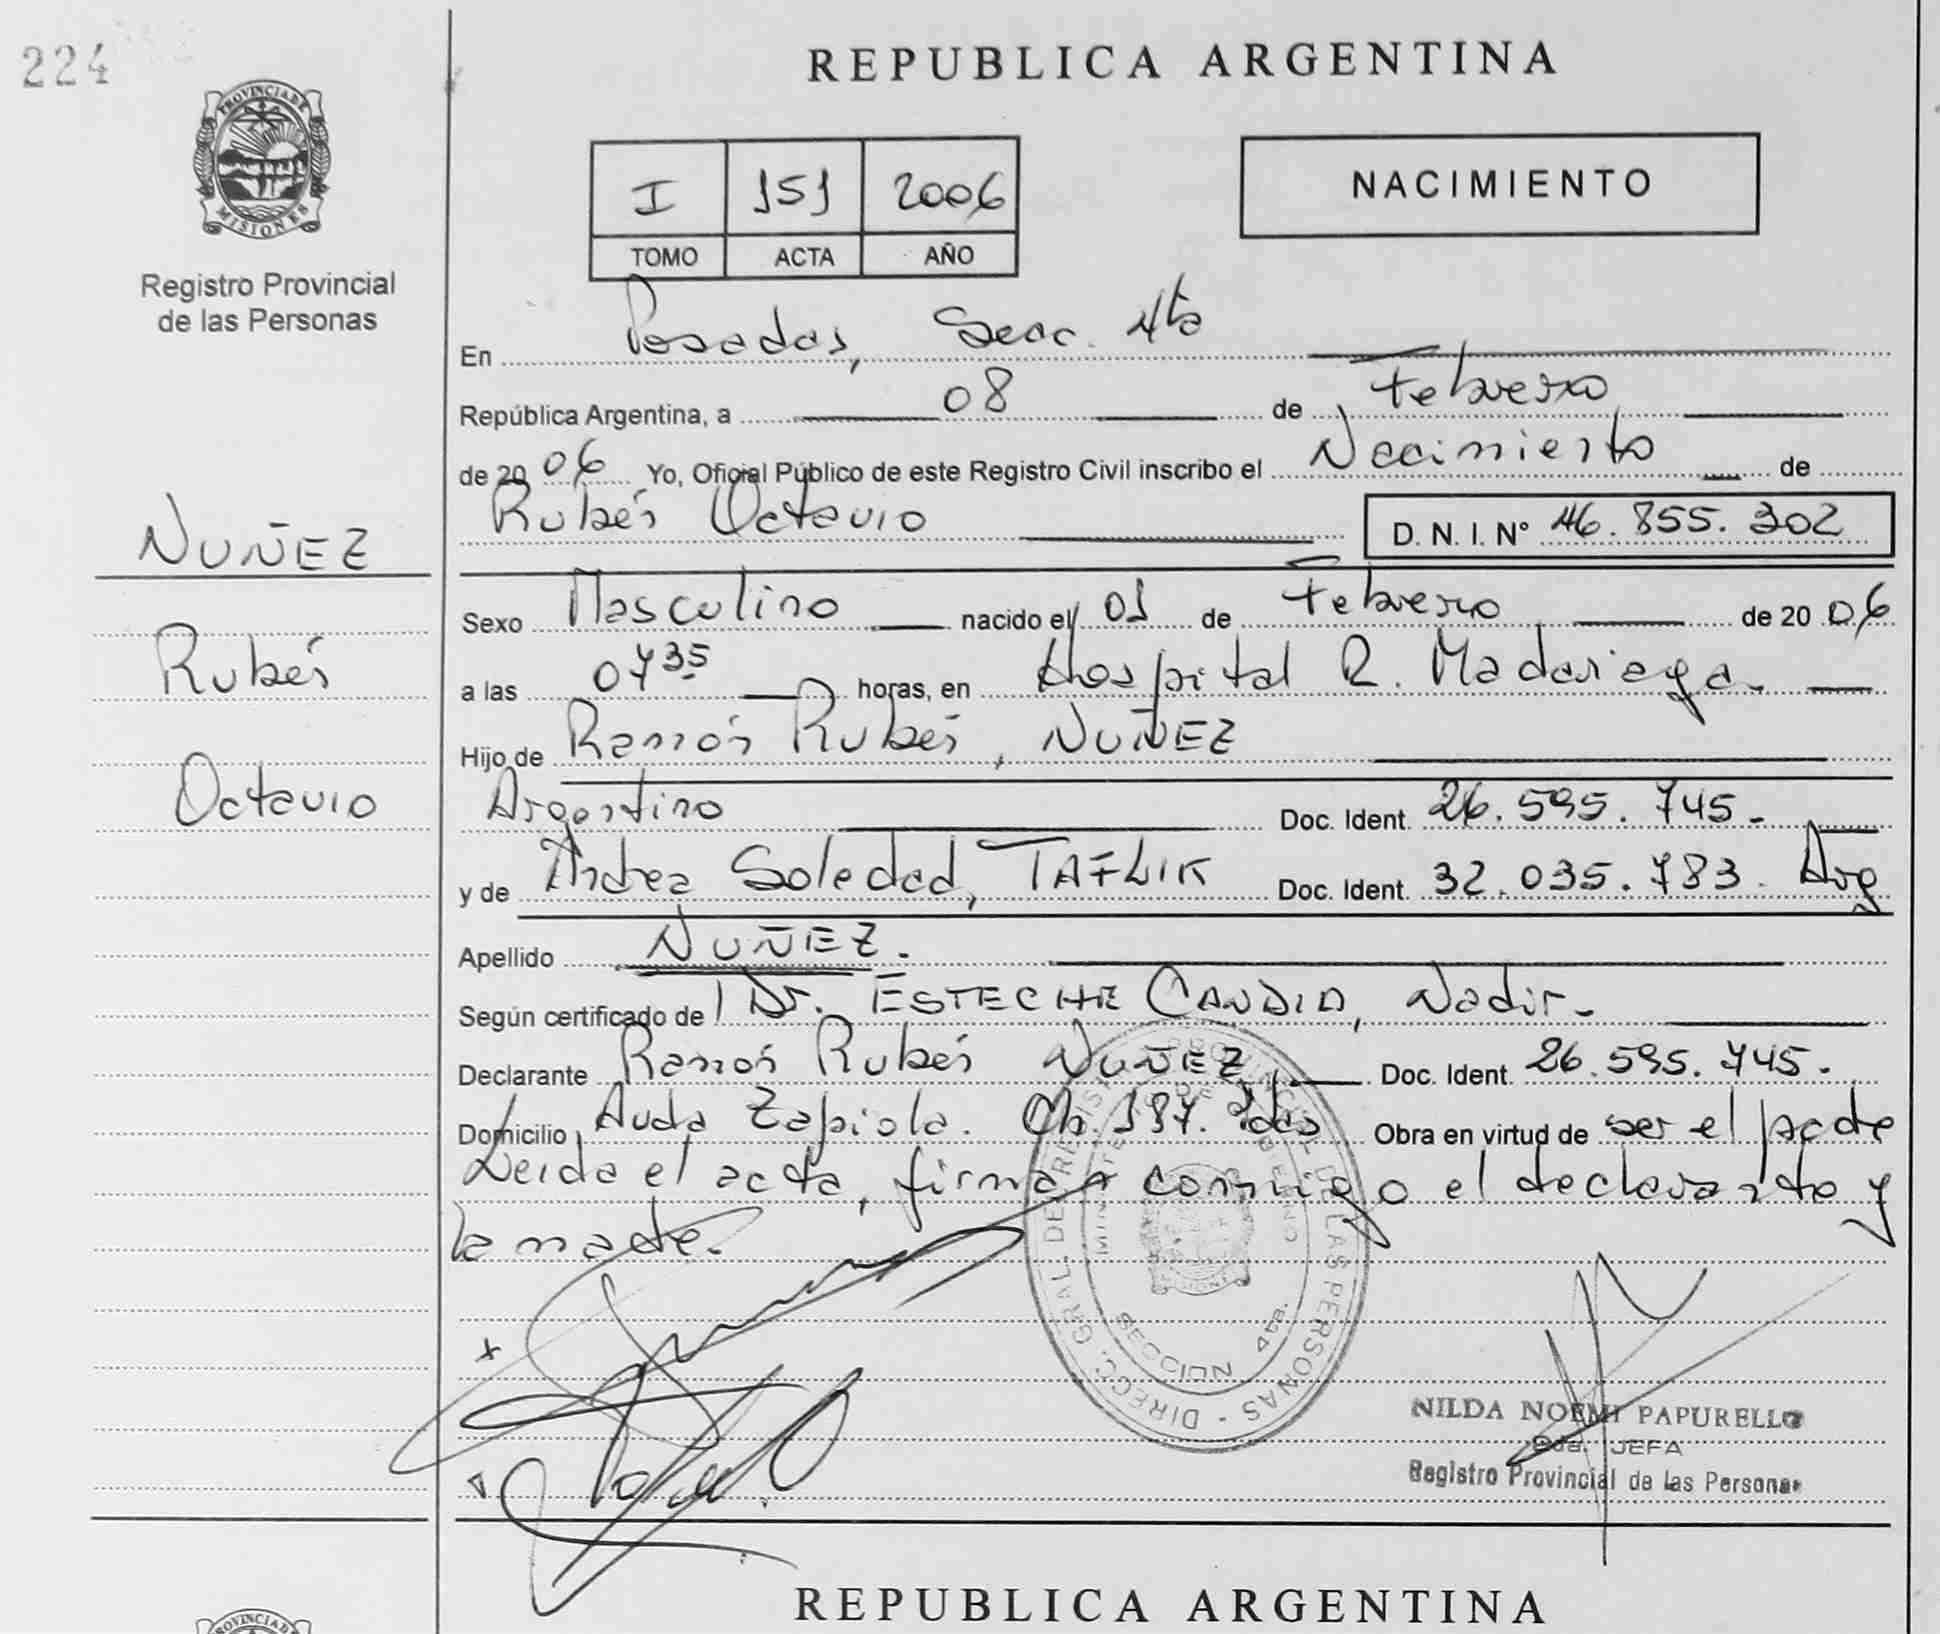 224
REPUBLICA ARGENTINA
PROVINCIA DE
MISIONES
Registro Provincial
de las Personas
I 151 2006
TOMO ACTA AÑO
NACIMIENTO
En Posadas, Secc. 4ta
República Argentina, a 08 de Febrero
de 2006 Yo, Oficial Público de este Registro Civil inscribo el Nacimiento de
Rubén Octavio D. N. I. N° 46.855.302
NUÑEZ
Rubén
Octavio
Sexo Masculino nacido el 01 de Febrero de 2006
a las 07 35 horas, en Hospital R. Madariaga.
Hijo de Ramón Rubén, NUÑEZ
Argentino Doc. Ident. 26.595.745.
y de Andrea Soledad, TAFLIK Doc. Ident. 32.035.783. Arg
Apellido NUÑEZ.
Según certificado de Dr. ESTECHE CANDIA, Nadir.
Declarante Ramón Rubén NUÑEZ Doc. Ident. 26.595.745.
Domicilio Avda Zapiola. Ch. 197. Pdas Obra en virtud de ser el padre
Leida el acta, firman conmigo el declarante y
la madre.
DIRECC. GRAL. DEL REGISTRO PROVINCIAL DE LAS PERSONAS
MINISTERIO DE GOBIERNO
SECCION 4ta.
NILDA NOEMI PAPURELLO
2da. JEFA
Registro Provincial de las Personas
REPUBLICA ARGENTINA
PROVINCIA DE